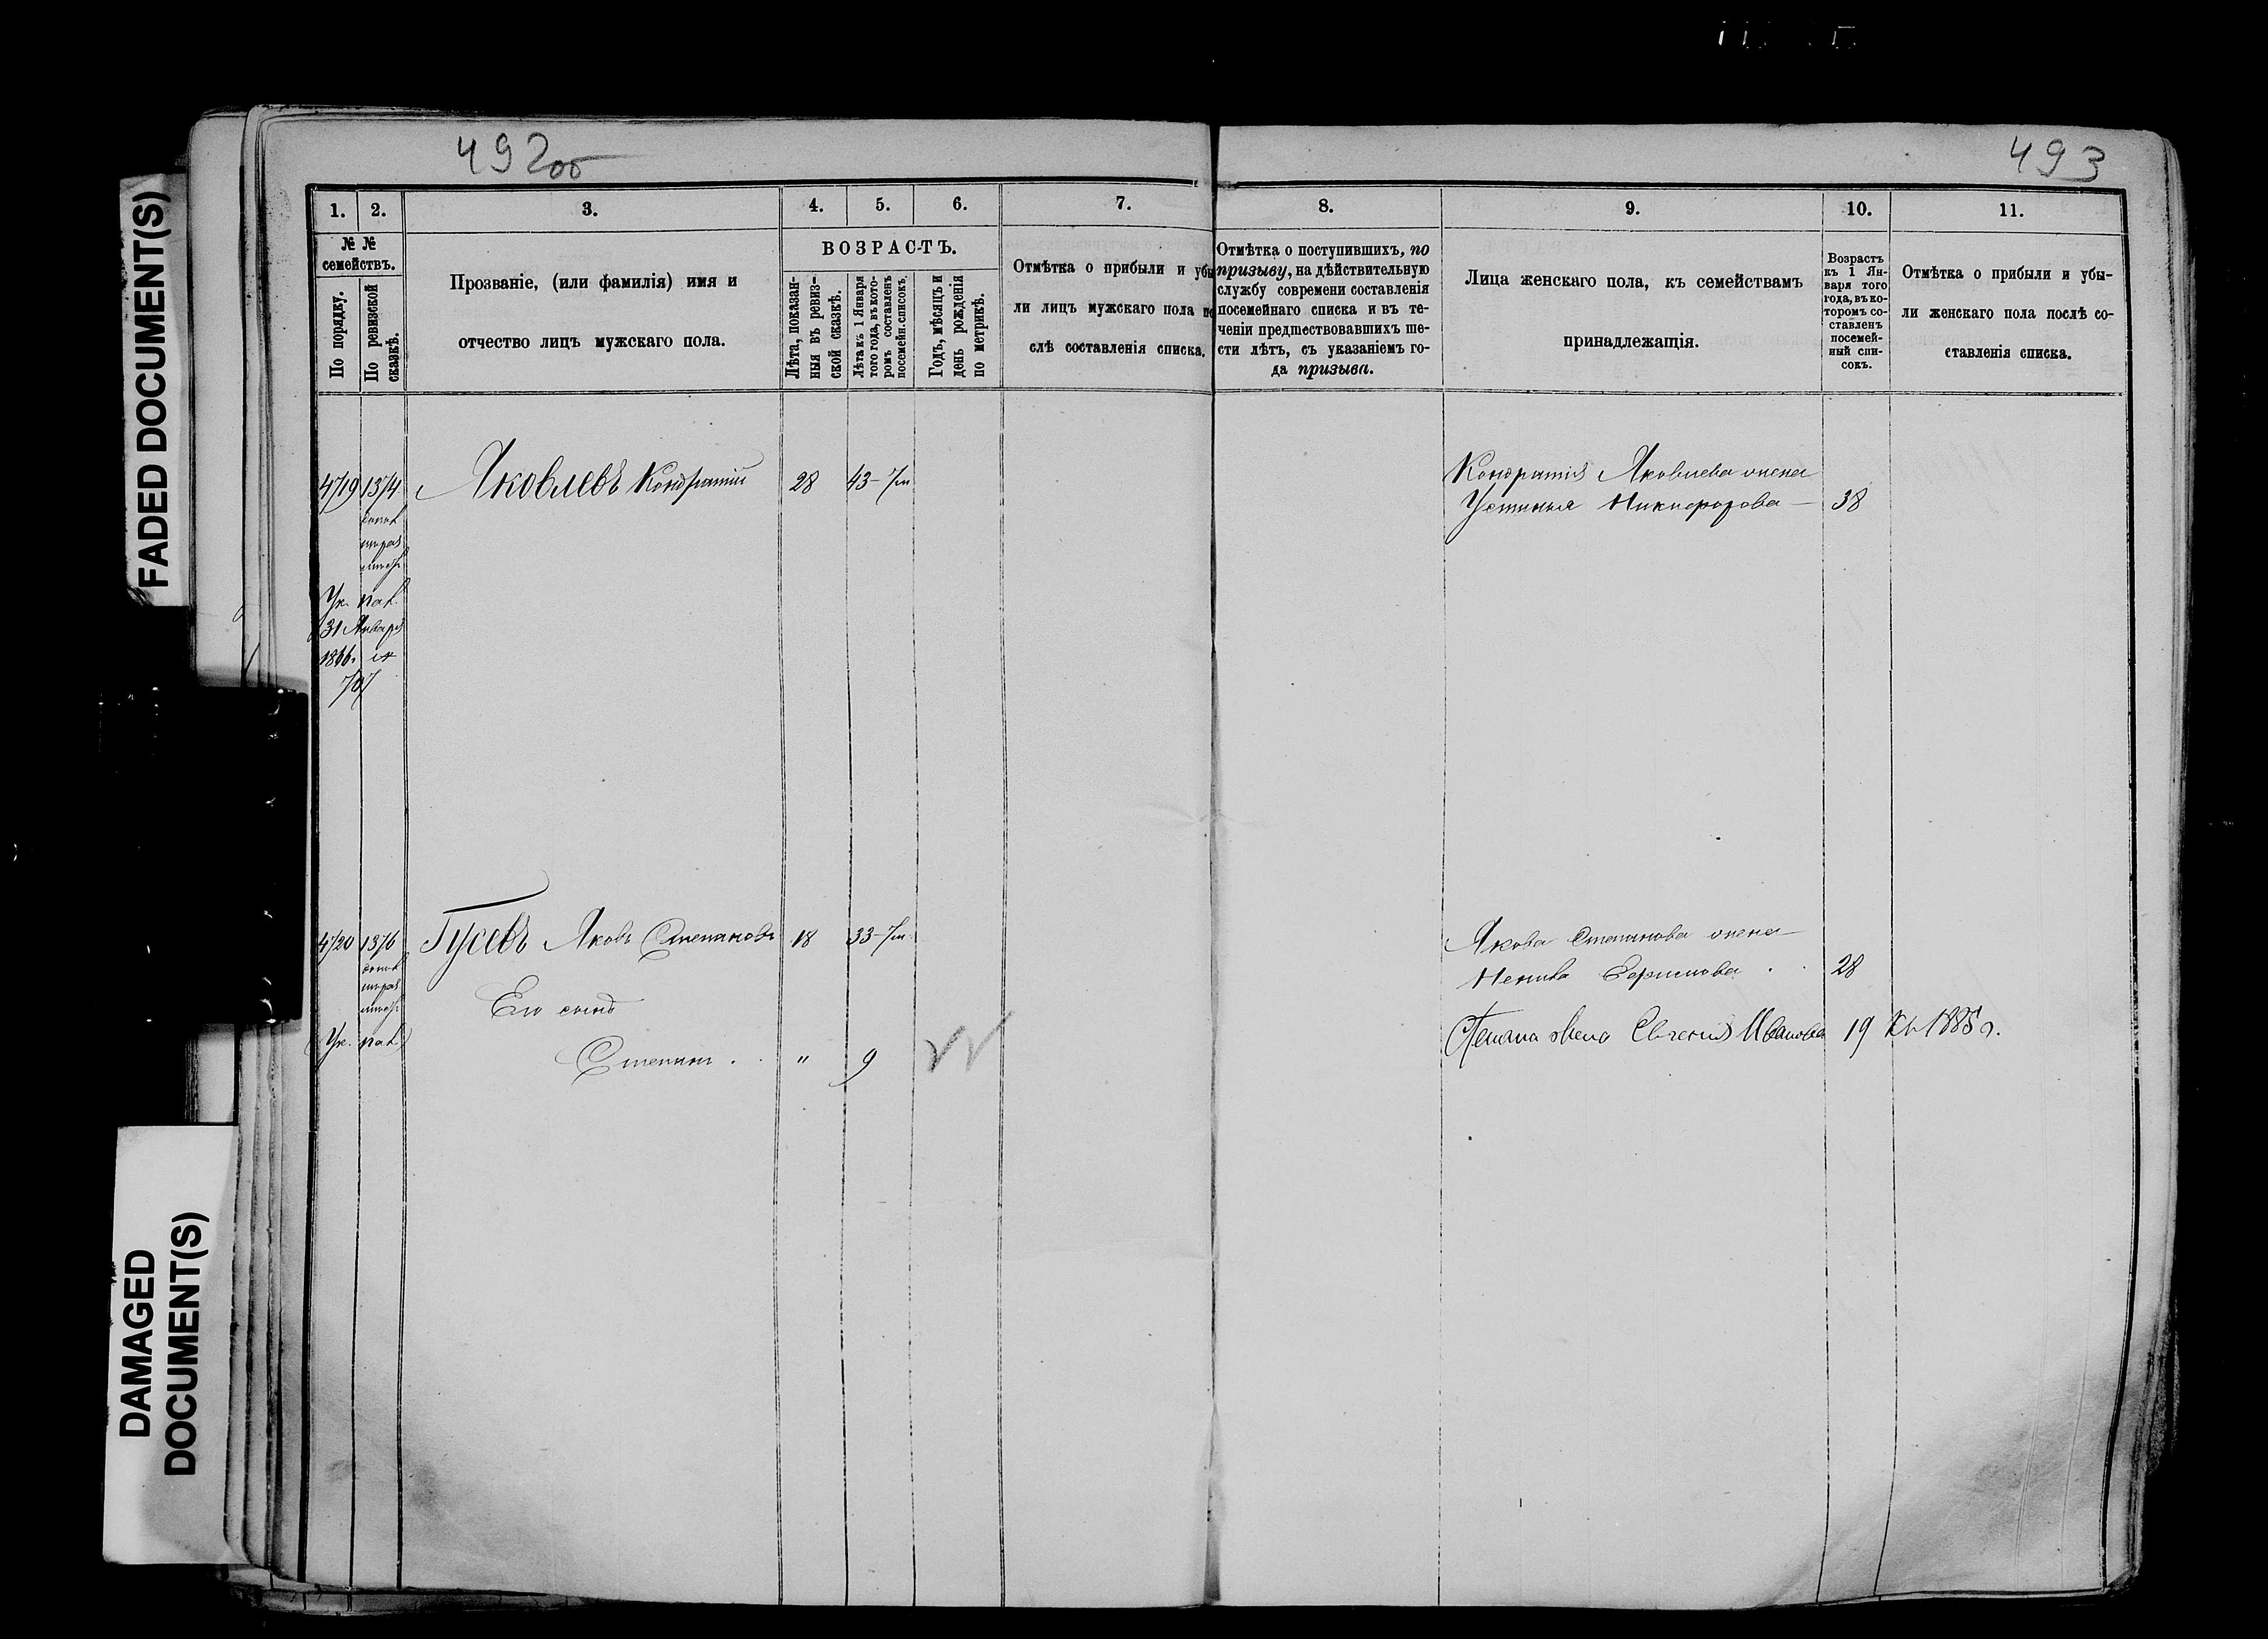 FADED DOCUMENT(S)
DAMAGED
DOCUMENT(S)
492об
493
1. 2. 3. 4. 5. 6. 7. 8. 9. 10. 11.
№ №
семействъ.
По порядку.
По ревизской
сказкѣ.
Прозваніе, (или фамилія) имя и
отчество лицъ мужскаго пола.
ВОЗРАСТЪ.
Лѣта, показан-
ныя въ ревиз-
ской сказкѣ.
Лѣта къ 1 Января
того года, въ кото-
ромъ составленъ
посемейн. списокъ.
Годъ, мѣсяцъ и
день рожденія
по метрикѣ.
Отмѣтка о прибыли и убы
ли лицъ мужскаго пола по
слѣ составленія списка.
Отмѣтка о поступившихъ, по
призыву, на дѣйствительную
службу современи составленія
посемейнаго списка и въ те-
ченіи предшествовавшихъ ше-
сти лѣтъ, съ указаніемъ го-
да призыва.
Лица женскаго пола, къ семействамъ
принадлежащія.
Возрастъ
къ 1 Ян-
варя того
года, въ ко-
торомъ со-
ставленъ
посемей-
ный спи-
сокъ.
Отмѣтка о прибыли и убы-
ли женскаго пола послѣ со-
ставленія списка.
4719 1374 Яковлевъ Кондратій 28 43-7м
Ук. пал.
31 Января
1866.
707
Кондратія Яковлева жена
Устинья Никифорова — 38
4720 1376 Гусевъ Яковъ Степановъ 18 33-7м
Ук. пал.
Его сынъ
Степанъ . . " 9
Якова Степанова жена
28
Степана жена Евгенія Иванова 19 1885 г.